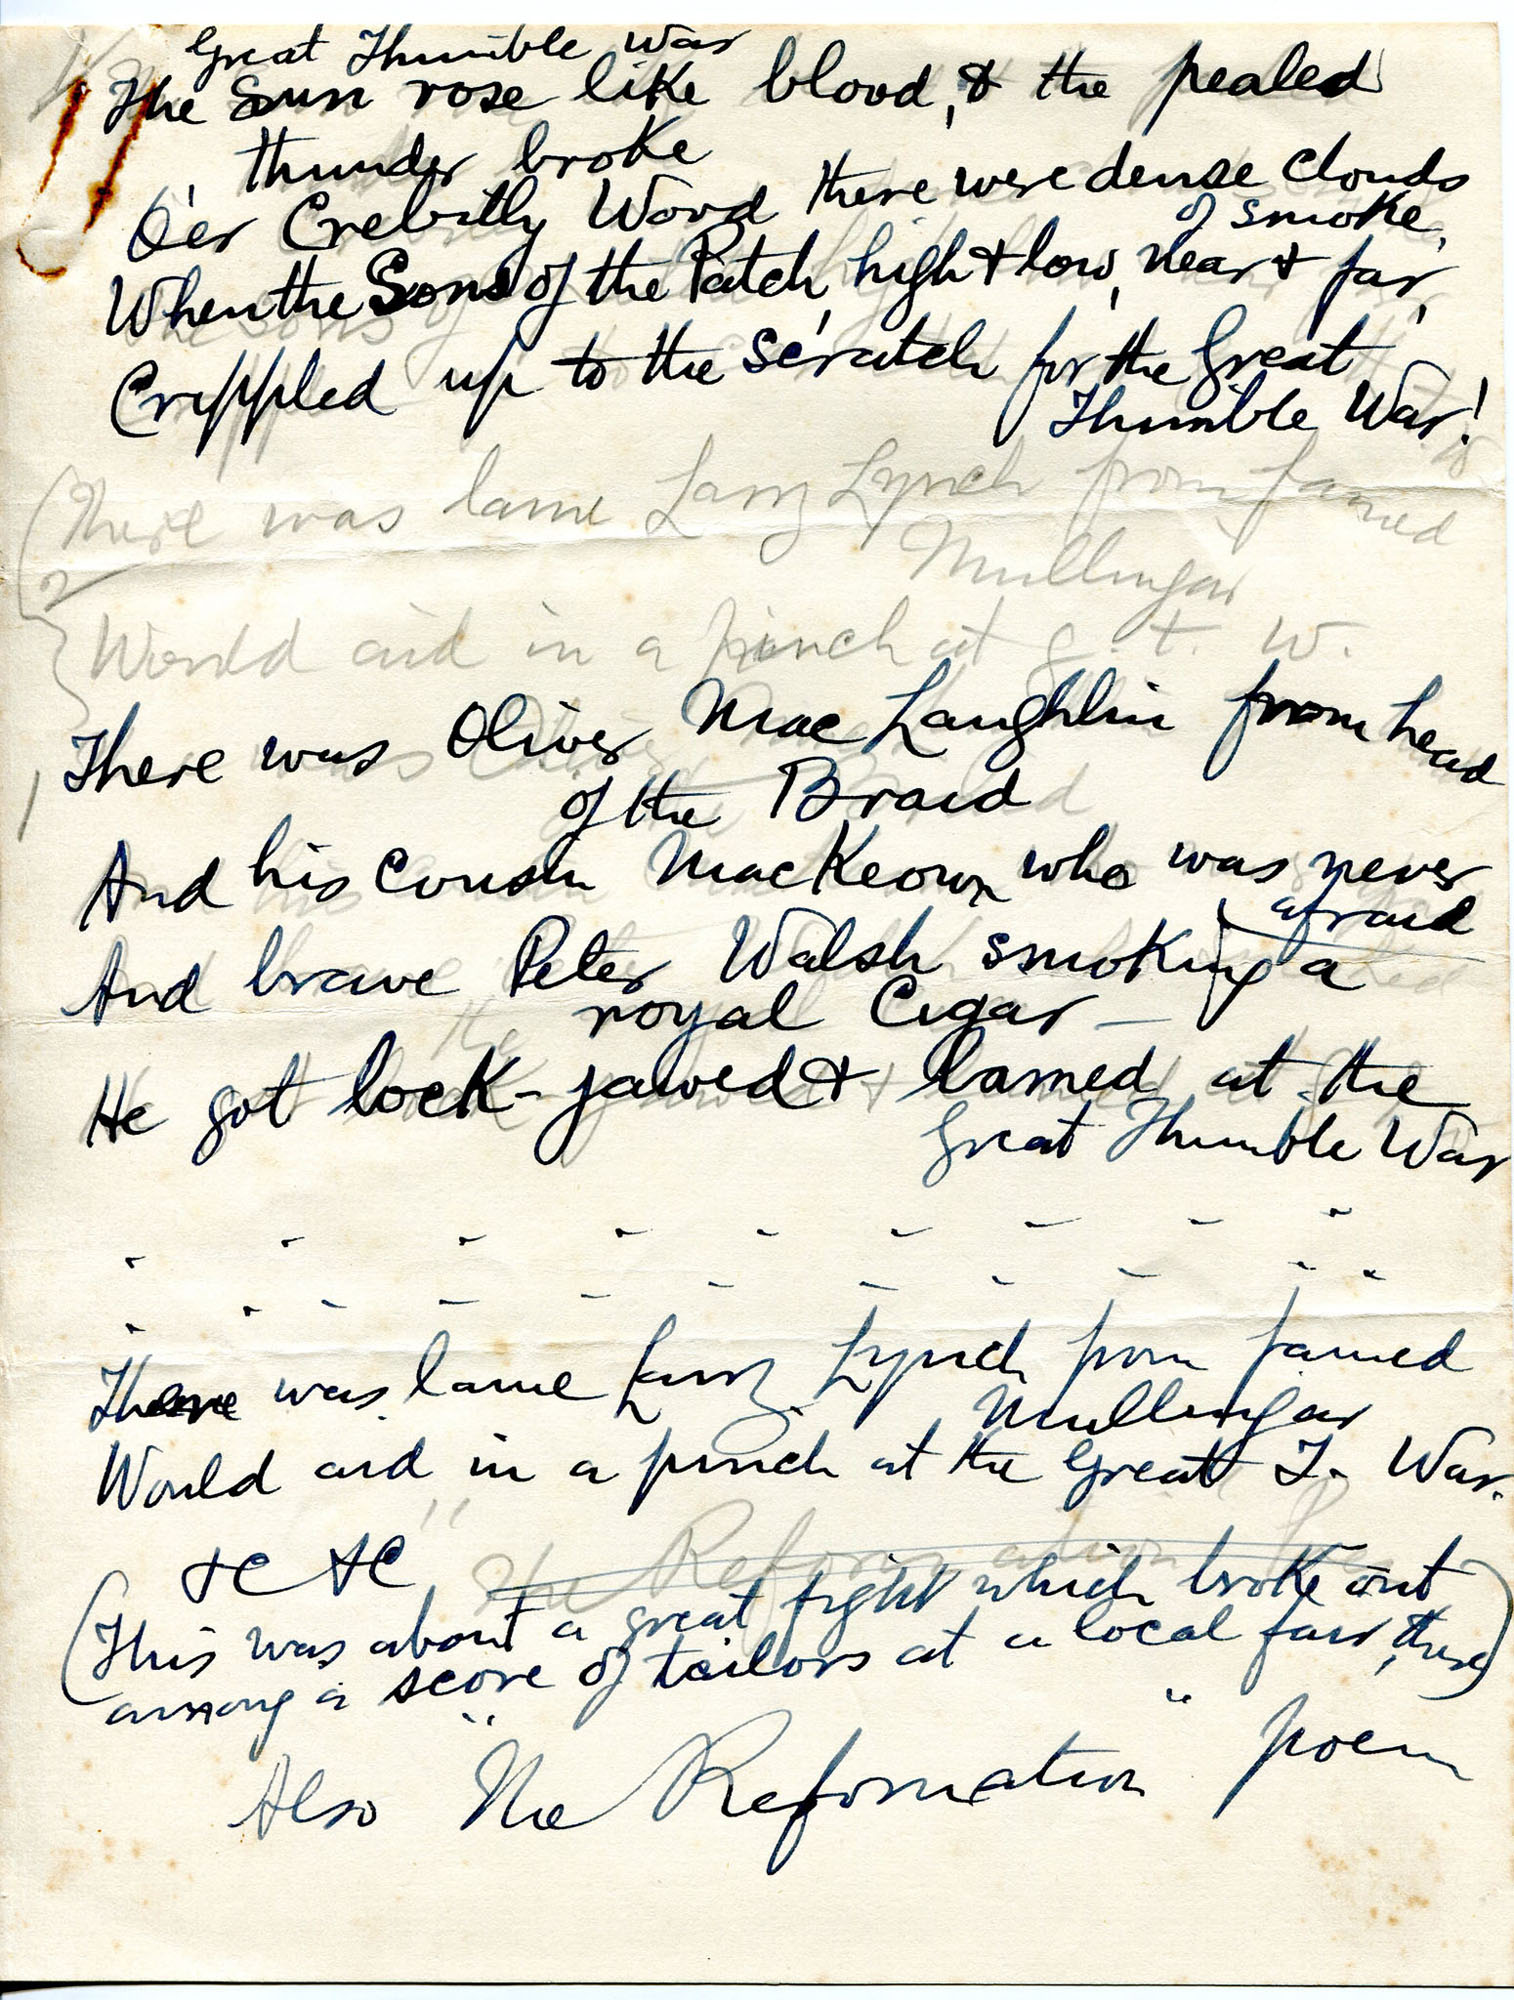 Great Thimble War
The Sun rose like blood, & the pealed
thunder broke
O'er Crebilly Wood there were dense clouds
of smoke,
When the Sons of the Patch, high & low, near & far,
Crippled up to the scratch for the Great
Thimble War!
(There was lame Larry Lynch from famed
Mullingar
Would aid in a pinch at g. t. W.
There was Oliver MacLaughlin from head
of the Braid
And his cousin MacKeown who was never
afraid
And brave Peter Walsh smoking a
royal Cigar —
He got lock-jawed & lamed at the
Great Thimble War
There was lame Larry Lynch from famed
Mullingar
Would aid in a pinch at the Great T. War.
&c &c
"The Reformation
(This was about a great fight which broke out
among a score of tailors at a local fair, there)
Also "The Reformation" poem